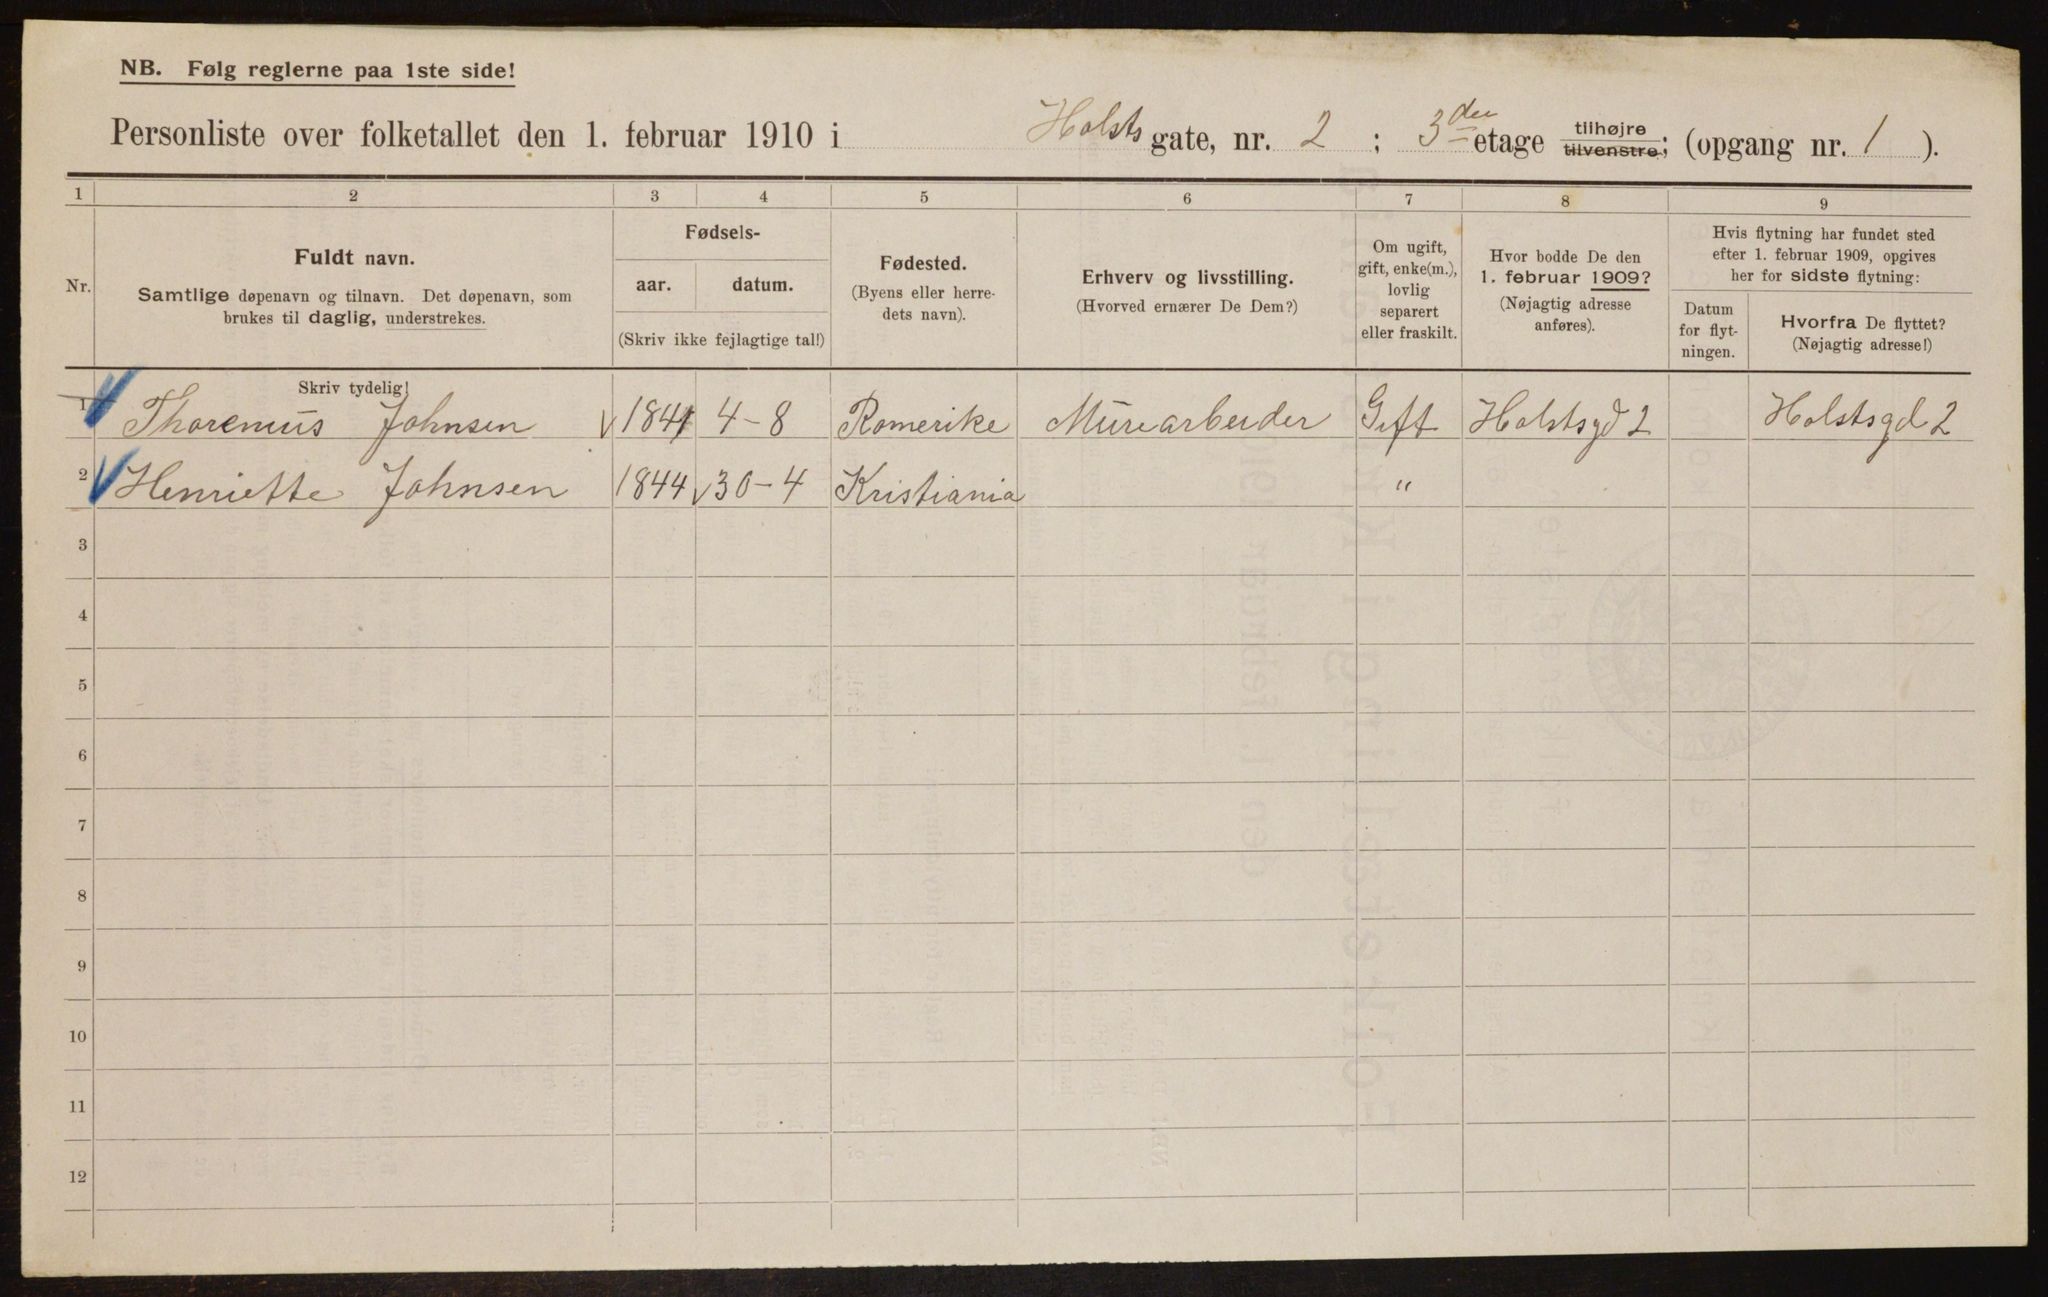 NB. Følg reglerne paa 1ste side!
Personliste over folketallet den 1. februar 1910 i Holsts gate, nr. 2 ; 3den etage tilhøjre tilvenstre; (opgang nr. 1 ).
1 2 3 4 5 6 7 8 9
Nr.
Fuldt navn.
Samtlige døpenavn og tilnavn. Det døpenavn, som
brukes til daglig, understrekes.
Fødsels-
aar. datum.
(Skriv ikke fejlagtige tal!)
Fødested.
(Byens eller herre-
dets navn).
Erhverv og livsstilling.
(Hvorved ernærer De Dem?)
Om ugift,
gift, enke(m.),
lovlig
separert
eller fraskilt.
Hvor bodde De den
1. februar 1909?
(Nøjagtig adresse
anføres).
Hvis flytning har fundet sted
efter 1. februar 1909, opgives
her for sidste flytning:
Datum
for flyt-
ningen.
Hvorfra De flyttet?
(Nøjagtig adresse!)
Skriv tydelig!
1 Thorenius Johnsen 1841 4-8 Romerike Murearbeider Gift Holstsgd 2 Holstsgd 2
2 Henriette Johnsen 1844 30-4 Kristiania "
3
4
5
6
7
8
9
10
11
12